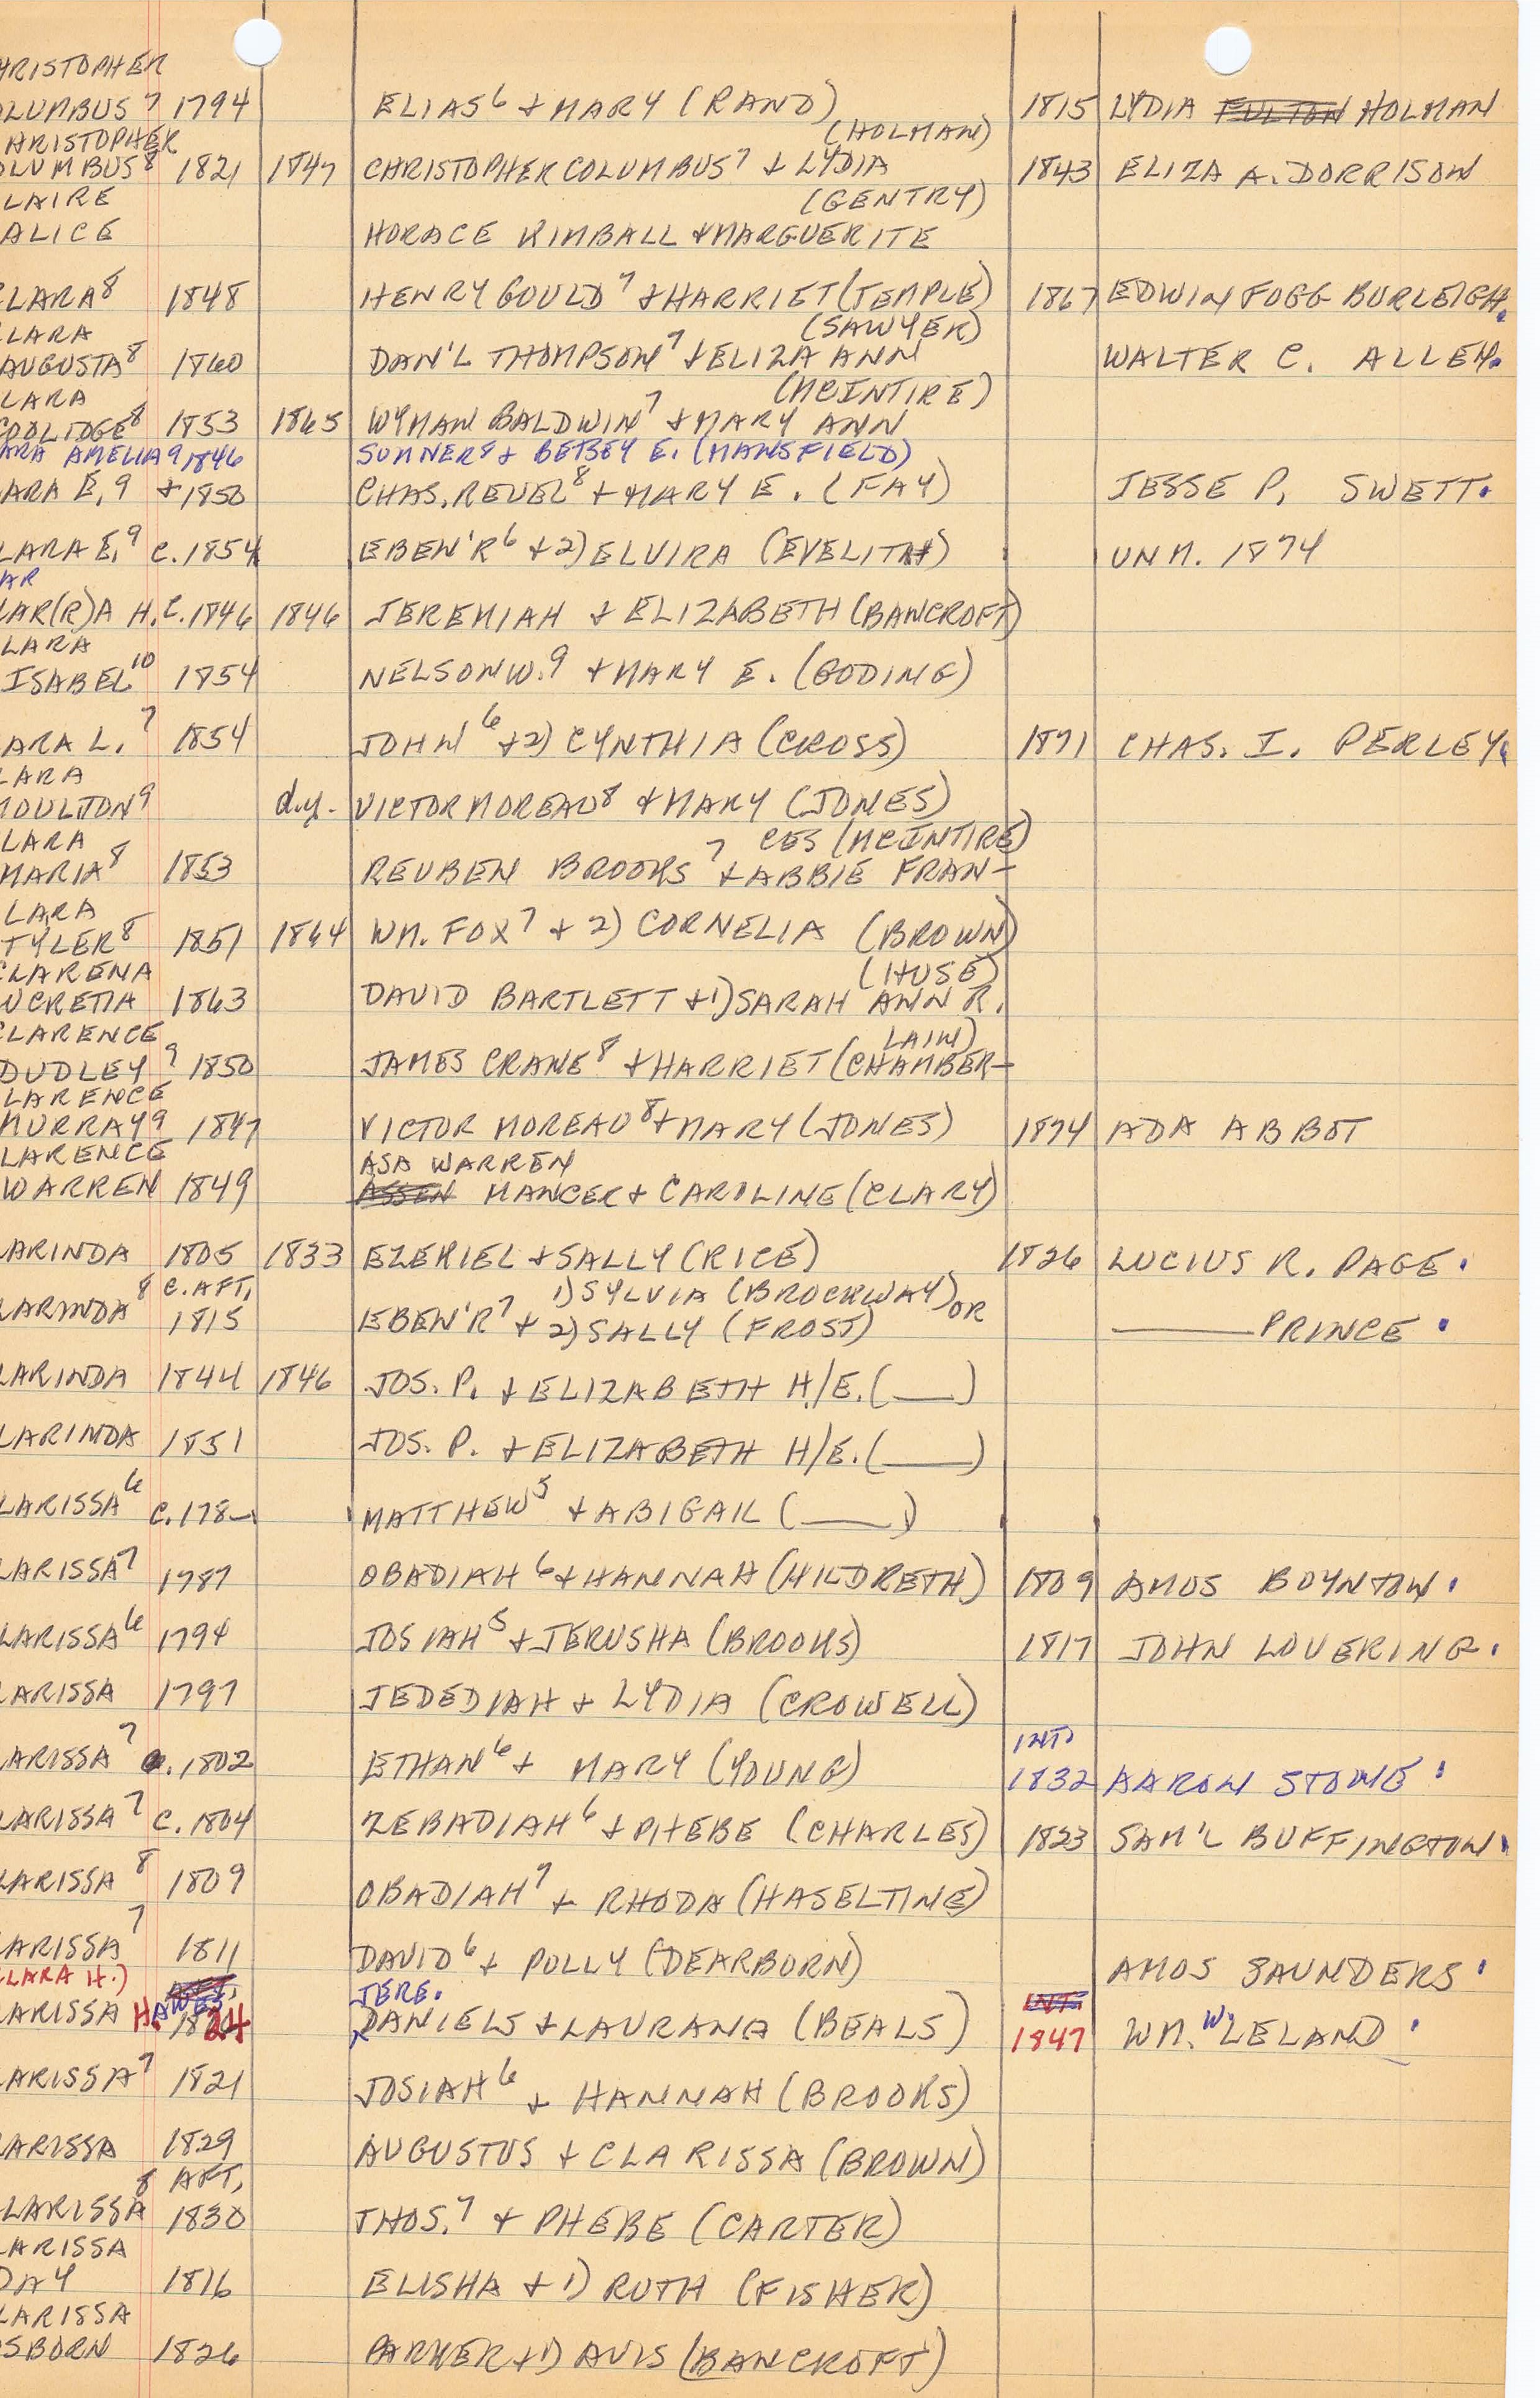 HRISTOPHER
OLUMBUS⁷ 1794 ELIAS⁶ + MARY (RAND) 1815 LYDIA FULTON HOLMAN
HRISTOPHER (HOLMAN)
OLUMBUS⁸ 1821 1847 CHRISTOPHER COLUMBUS⁷ + LYDIA 1843 ELIZA A. DORRISON
LAIRE (GENTRY)
ALICE HORACE KIMBALL + MARGUERITE
LARA⁸ 1848 HENRY GOULD⁷ + HARRIET (TEMPLE) 1867 EDWIN FOGG BURLEIGH.
LARA (SAWYER)
AUGUSTA⁸ 1860 DAN'L THOMPSON⁷ + ELIZA ANN WALTER C. ALLEN.
LARA (MCINTIRE)
COOLIDGE⁸ 1853 1865 WYMAN BALDWIN⁷ + MARY ANN
ARA AMELIA⁹ 1846 SUMNER⁸ + BETSEY E. (MANSFIELD)
ARA E.⁹ + 1850 CHAS. REUEL⁸ + MARY E. (FAY) JESSE P. SWETT.
LARA E.⁹ C. 1854 EBEN'R⁶ + 2) ELVIRA (EVELITH) UNM. 1874
AR
LAR(R)A H. C. 1846 1846 JEREMIAH + ELIZABETH (BANCROFT)
LARA
ISABEL¹⁰ 1854 NELSON W.⁹ + MARY E. (GODING)
ARA L.⁷ 1854 JOHN⁶ + 2) CYNTHIA (CROSS) 1871 CHAS. I. PERLEY.
LARA
MOULTON⁹ d.y. VICTOR MOREAU⁸ + MARY (JONES)
LARA CES (MCINTIRE)
MARIA⁸ 1853 REUBEN BROOKS⁷ + ABBIE FRAN-
LARA
TYLER⁸ 1851 1864 WM. FOX⁷ + 2) CORNELIA (BROWN)
CLARENA (HUSE)
UCRETIA 1863 DAVID BARTLETT + 1) SARAH ANN R.
CLARENCE LAIN)
DUDLEY⁹ 1850 JAMES CRANE⁸ + HARRIET (CHAMBER-
LARENCE
MURRAY⁹ 1847 VICTOR MOREAU⁸ + MARY (JONES) 1874 ADA ABBOT
LARENCE ASA WARREN
WARREN 1849 ASSEN MANCER + CAROLINE (CLARY)
LARINDA 1805 1833 EZEKIEL + SALLY (RICE) 1826 LUCIUS R. PAGE.
⁸ C. AFT. 1) SYLVIA (BROCKWAY) OR
LARINDA 1815 EBEN'R⁷ + 2) SALLY (FROST) ____ PRINCE.
LARINDA 1844 1846 JOS. P. + ELIZABETH H/E. (____)
LARINDA 1851 JOS. P. + ELIZABETH H/E. (____)
LARISSA⁶ C. 178- MATTHEW⁵ + ABIGAIL (____)
LARISSA⁷ 1787 OBADIAH⁶ + HANNAH (HILDRETH) 1809 AMOS BOYNTON.
LARISSA⁶ 1794 JOSIAH⁵ + JERUSHA (BROOKS) 1817 JOHN LOVERING.
LARISSA 1797 JEDEDIAH + LYDIA (CROWELL)
INT.
LARISSA⁷ C. 1802 ETHAN⁶ + MARY (YOUNG) 1832 AARON STONE.
LARISSA⁷ C. 1804 ZEBADIAH⁶ + PHEBE (CHARLES) 1823 SAM'L BUFFINGTON.
LARISSA⁸ 1809 OBADIAH⁷ + RHODA (HASELTINE)
LARISSA⁷ 1811 DAVID⁶ + POLLY (DEARBORN) AMOS SAUNDERS.
LARA H.) AFT. JERE. INT.
LARISSA HAWES 1824 DANIELS + LAURANA (BEALS) 1847 WM. W. LELAND.
LARISSA⁷ 1821 JOSIAH⁶ + HANNAH (BROOKS)
LARISSA 1829 AUGUSTUS + CLARISSA (BROWN)
⁸ AFT.
LARISSA 1830 THOS.⁷ + PHEBE (CARTER)
LARISSA
DAY 1816 ELISHA + 1) RUTH (FISHER)
LARISSA
SBORN 1826 PARKER + 1) AVIS (BANCROFT)